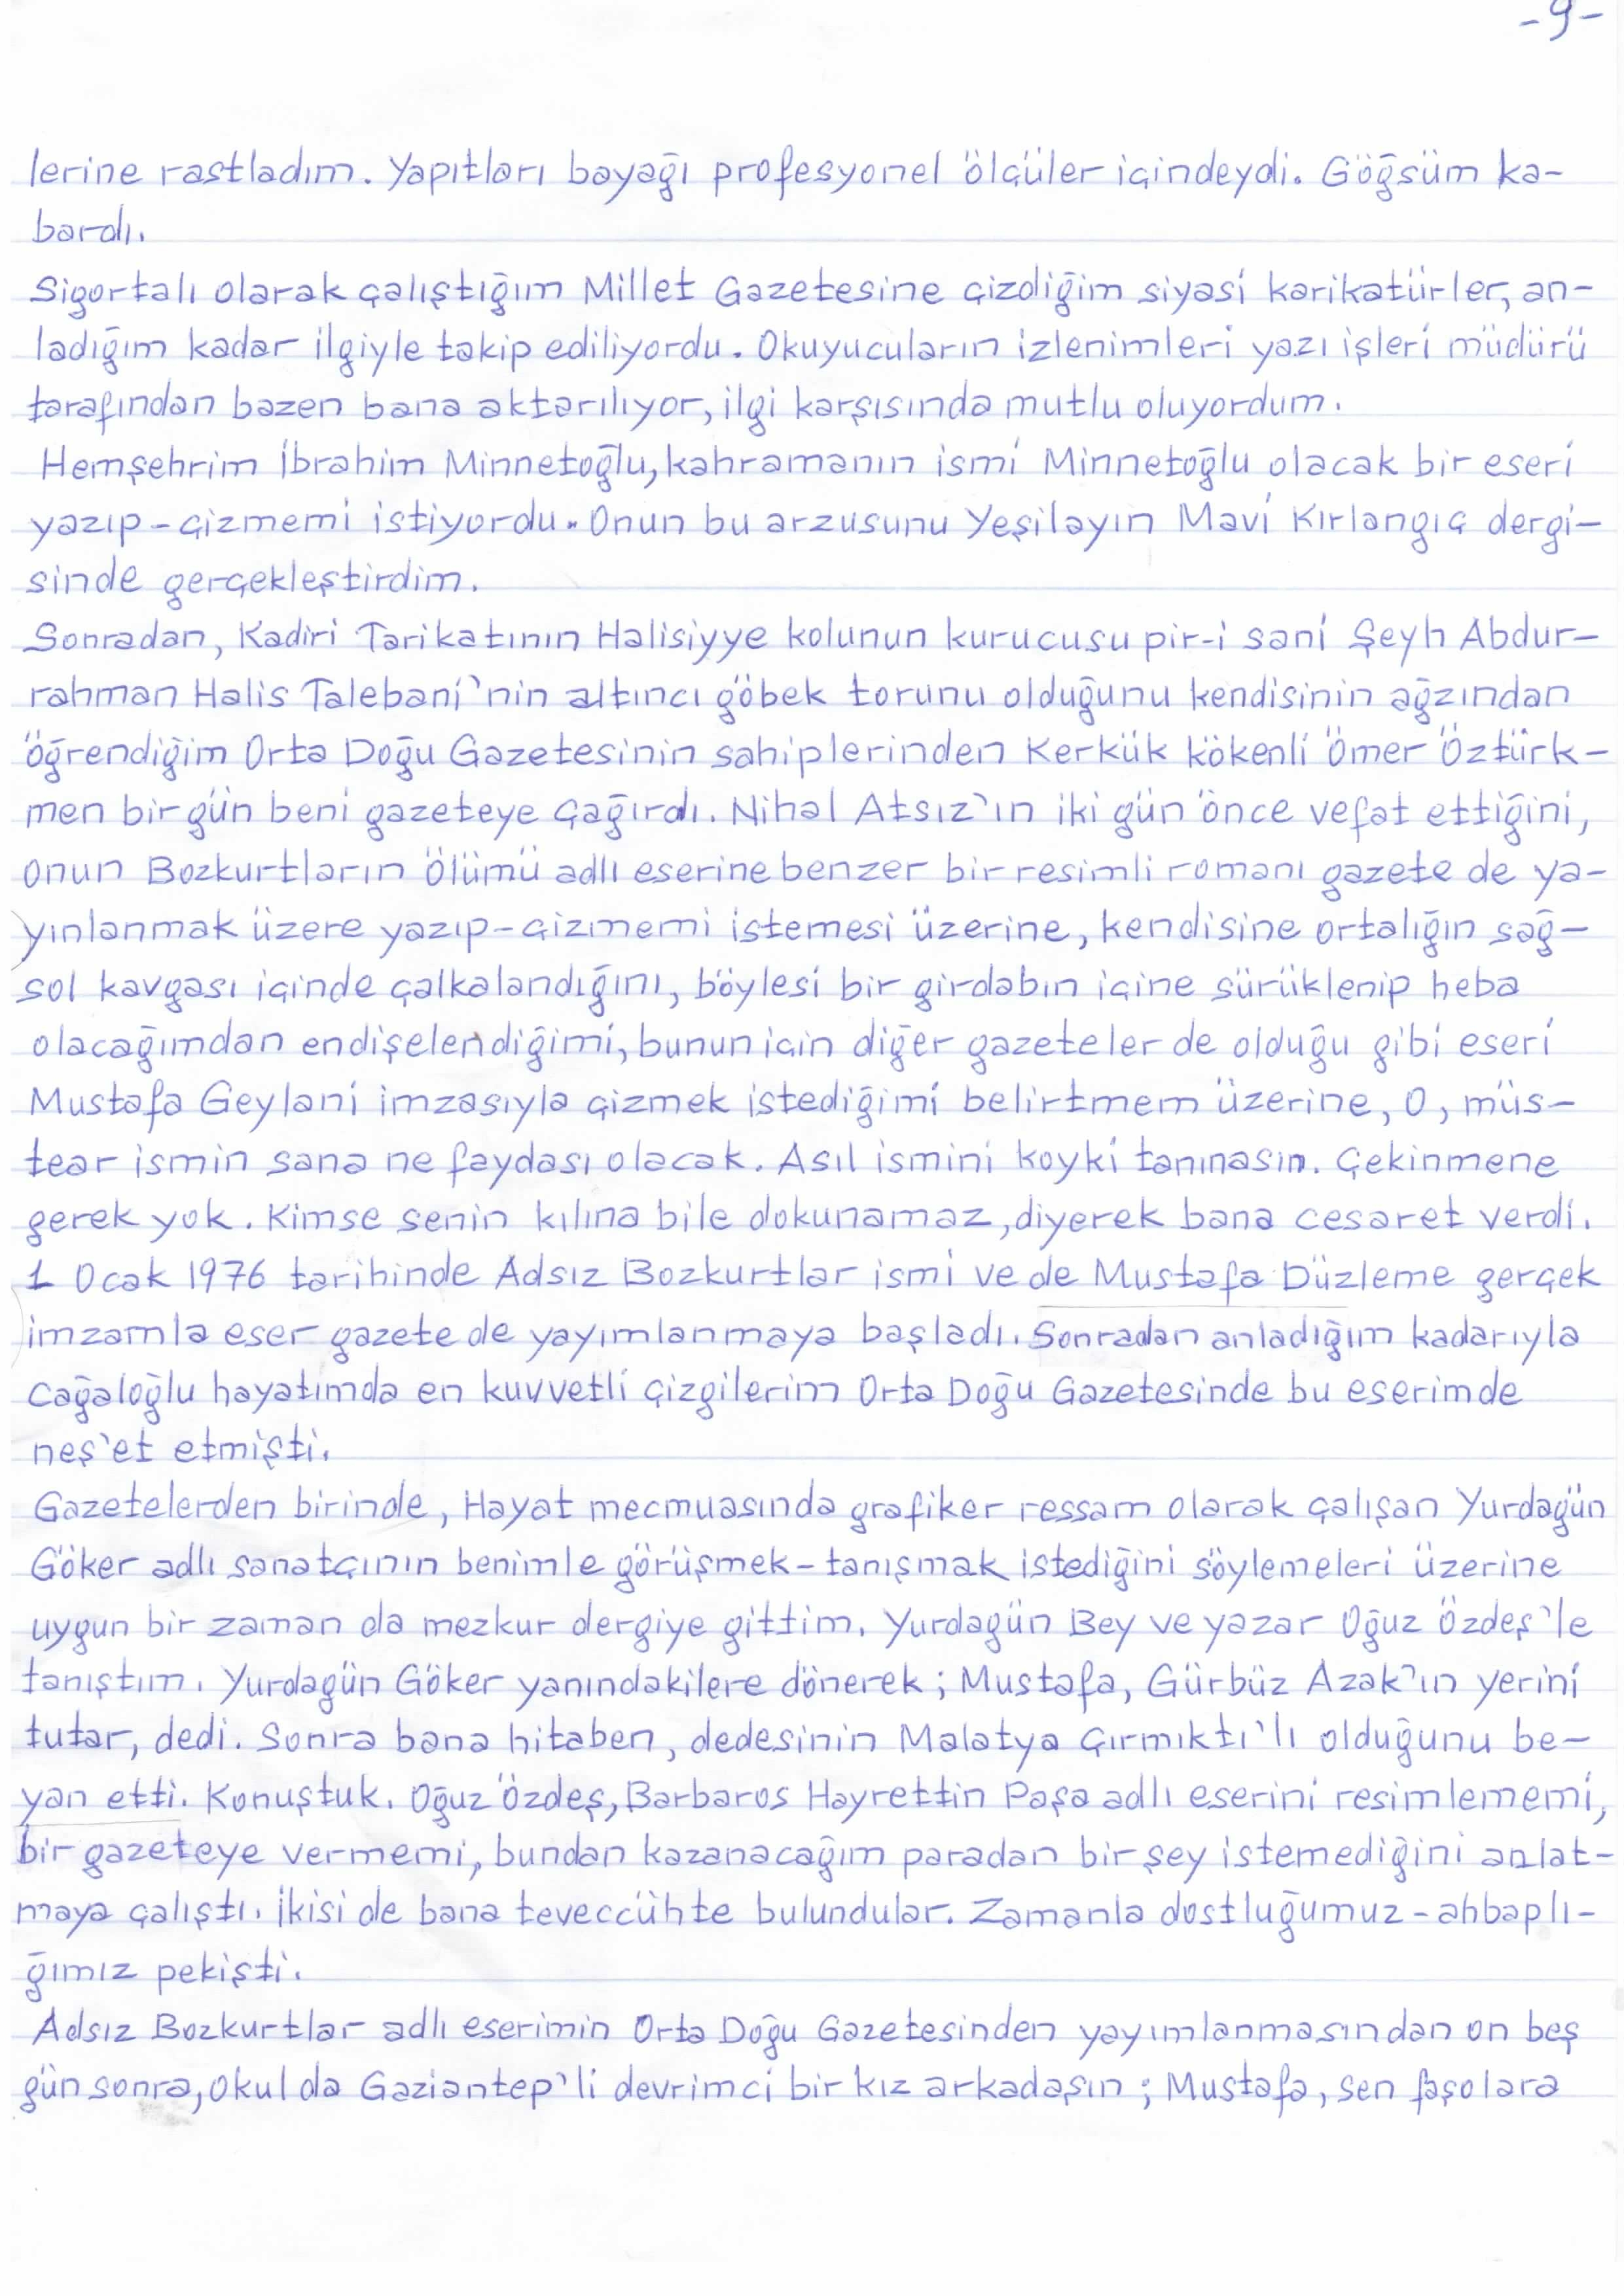 -9-
lerine rastladım. Yapıtları bayağı profesyonel ölçüler içindeydi. Göğsüm ka-
bardı.
Sigortalı olarak çalıştığım Millet Gazetesine çizdiğim siyasi karikatürler, an-
ladığım kadar ilgiyle takip ediliyordu. Okuyucuların izlenimleri yazı işleri müdürü
tarafından bazen bana aktarılıyor, ilgi karşısında mutlu oluyordum.
Hemşehrim İbrahim Minnetoğlu, kahramanın ismi Minnetoğlu olacak bir eseri
yazıp-çizmemi istiyordu. Onun bu arzusunu Yeşilayın Mavi Kırlangıç dergi-
sinde gerçekleştirdim.
Sonradan, Kadiri Tarikatının Halisiyye kolunun kurucusu pir-i sani Şeyh Abdur-
rahman Halis Talebani'nin altıncı göbek torunu olduğunu kendisinin ağzından
öğrendiğim Orta Doğu Gazetesinin sahiplerinden Kerkük kökenli Ömer Öztürk-
men bir gün beni gazeteye çağırdı. Nihal Atsız'ın iki gün önce vefat ettiğini,
onun Bozkurtların Ölümü adlı eserine benzer bir resimli romanı gazete de ya-
yınlanmak üzere yazıp-çizmemi istemesi üzerine, kendisine ortalığın sağ-
sol kavgası içinde çalkalandığını, böylesi bir girdabın içine sürüklenip heba
olacağımdan endişelendiğimi, bunun için diğer gazeteler de olduğu gibi eseri
Mustafa Geylani imzasıyla çizmek istediğimi belirtmem üzerine, O, müs-
tear ismin sana ne faydası olacak. Asıl ismini koyki tanınasın. Çekinmene
gerek yok. Kimse senin kılına bile dokunamaz, diyerek bana cesaret verdi.
1 Ocak 1976 tarihinde Adsız Bozkurtlar ismi ve de Mustafa Düzleme gerçek
imzamla eser gazete de yayımlanmaya başladı. Sonradan anladığım kadarıyla
Cağaloğlu hayatımda en kuvvetli çizgilerim Orta Doğu Gazetesinde bu eserimde
neş'et etmişti.
Gazetelerden birinde, Hayat mecmuasında grafiker ressam olarak çalışan Yurdagün
Göker adlı sanatçının benimle görüşmek-tanışmak istediğini söylemeleri üzerine
uygun bir zaman da mezkur dergiye gittim. Yurdagün Bey ve yazar Oğuz Özdeş'le
tanıştım. Yurdagün Göker yanındakilere dönerek; Mustafa, Gürbüz Azak'ın yerini
tutar, dedi. Sonra bana hitaben, dedesinin Malatya Çırmıktı'lı olduğunu be-
yan etti. Konuştuk. Oğuz Özdeş, Barbaros Hayrettin Paşa adlı eserini resimlememi,
bir gazeteye vermemi, bundan kazanacağım paradan bir şey istemediğini anlat-
maya çalıştı. İkisi de bana teveccühte bulundular. Zamanla dostluğumuz-ahbaplı-
ğımız pekişti.
Adsız Bozkurtlar adlı eserimin Orta Doğu Gazetesinden yayımlanmasından on beş
gün sonra, okul da Gaziantep'li devrimci bir kız arkadaşın; Mustafa, sen faşolara